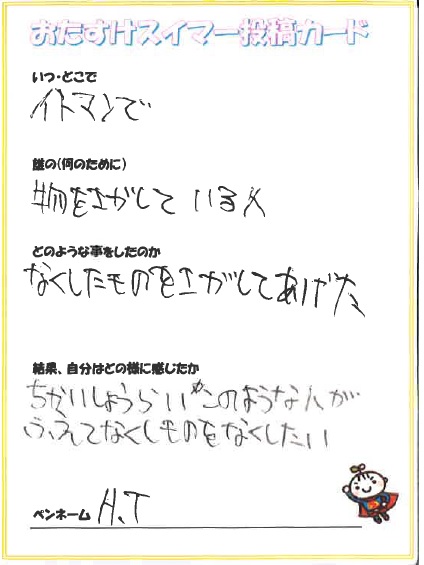 おたすけスイマー投稿カード
いつ・どこで
イトマンで
誰の(何のために)
物をさがしている人
どのような事をしたのか
なくしたものをさがしてあげた
結果、自分はどの様に感じたか
ちかいしょうらいこのような人が
ふえてなくしものをなくしたい
ペンネーム H.T